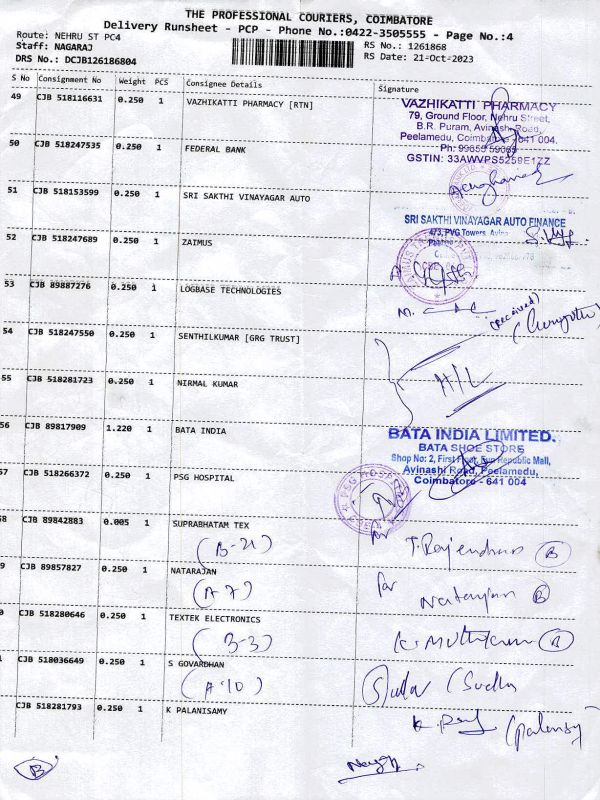 THE PROFESSIONAL COURIERS, COIMBATORE
Delivery Runsheet - PCP - Phone No.:0422-3505555 - Page No.:4
Route: NEHRU ST PC4
RS No.: 1261868
Staff: NAGARAJ
RS Date: 21-Oct-2023
DRS No.: DCJB126186804
S No Consignment No Weight PCS Consignee Details Signature
49 CJB 518116631 0.250 1 VAZHIKATTI PHARMACY [RTN]
VAZHIKATTI PHARMACY
79, Ground Floor, Nehru Street,
B.R. Puram, Avinashi Road,
Peelamedu, Coimbatore 641 004.
Ph: 99655 59065
GSTIN: 33AWVPS5259E1ZZ
50 CJB 518247535 0.250 1 FEDERAL BANK
51 CJB 518153599 0.250 1 SRI SAKTHI VINAYAGAR AUTO
SRI SAKTHI VINAYAGAR AUTO FINANCE
473, PVG Towers,
52 CJB 518247689 0.250 1 ZAIMUS
53 CJB 89887276 0.250 1 LOGBASE TECHNOLOGIES
(Received)
54 CJB 518247550 0.250 1 SENTHILKUMAR [GRG TRUST]
55 CJB 518281723 0.250 1 NIRMAL KUMAR
56 CJB 89817909 1.220 1 BATA INDIA
BATA INDIA LIMITED.
BATA SHOE STORE
Shop No: 2, First Floor, Fun Republic Mall,
Avinashi Road, Peelamedu,
Coimbatore - 641 004
57 CJB 518266372 0.250 1 PSG HOSPITAL
PSG HOSPITALS
58 CJB 89842883 0.005 1 SUPRABHATAM TEX
(B-21) for T. Rajendran (B)
9 CJB 89857827 0.250 1 NATARAJAN
(A7) for Natarajan (B)
0 CJB 518280646 0.250 1 TEXTEK ELECTRONICS
(B-3) (B)
1 CJB 518036649 0.250 1 S GOVARDHAN
(A-10) (Sudha
CJB 518281793 0.250 1 K PALANISAMY
(palansy)
(B)